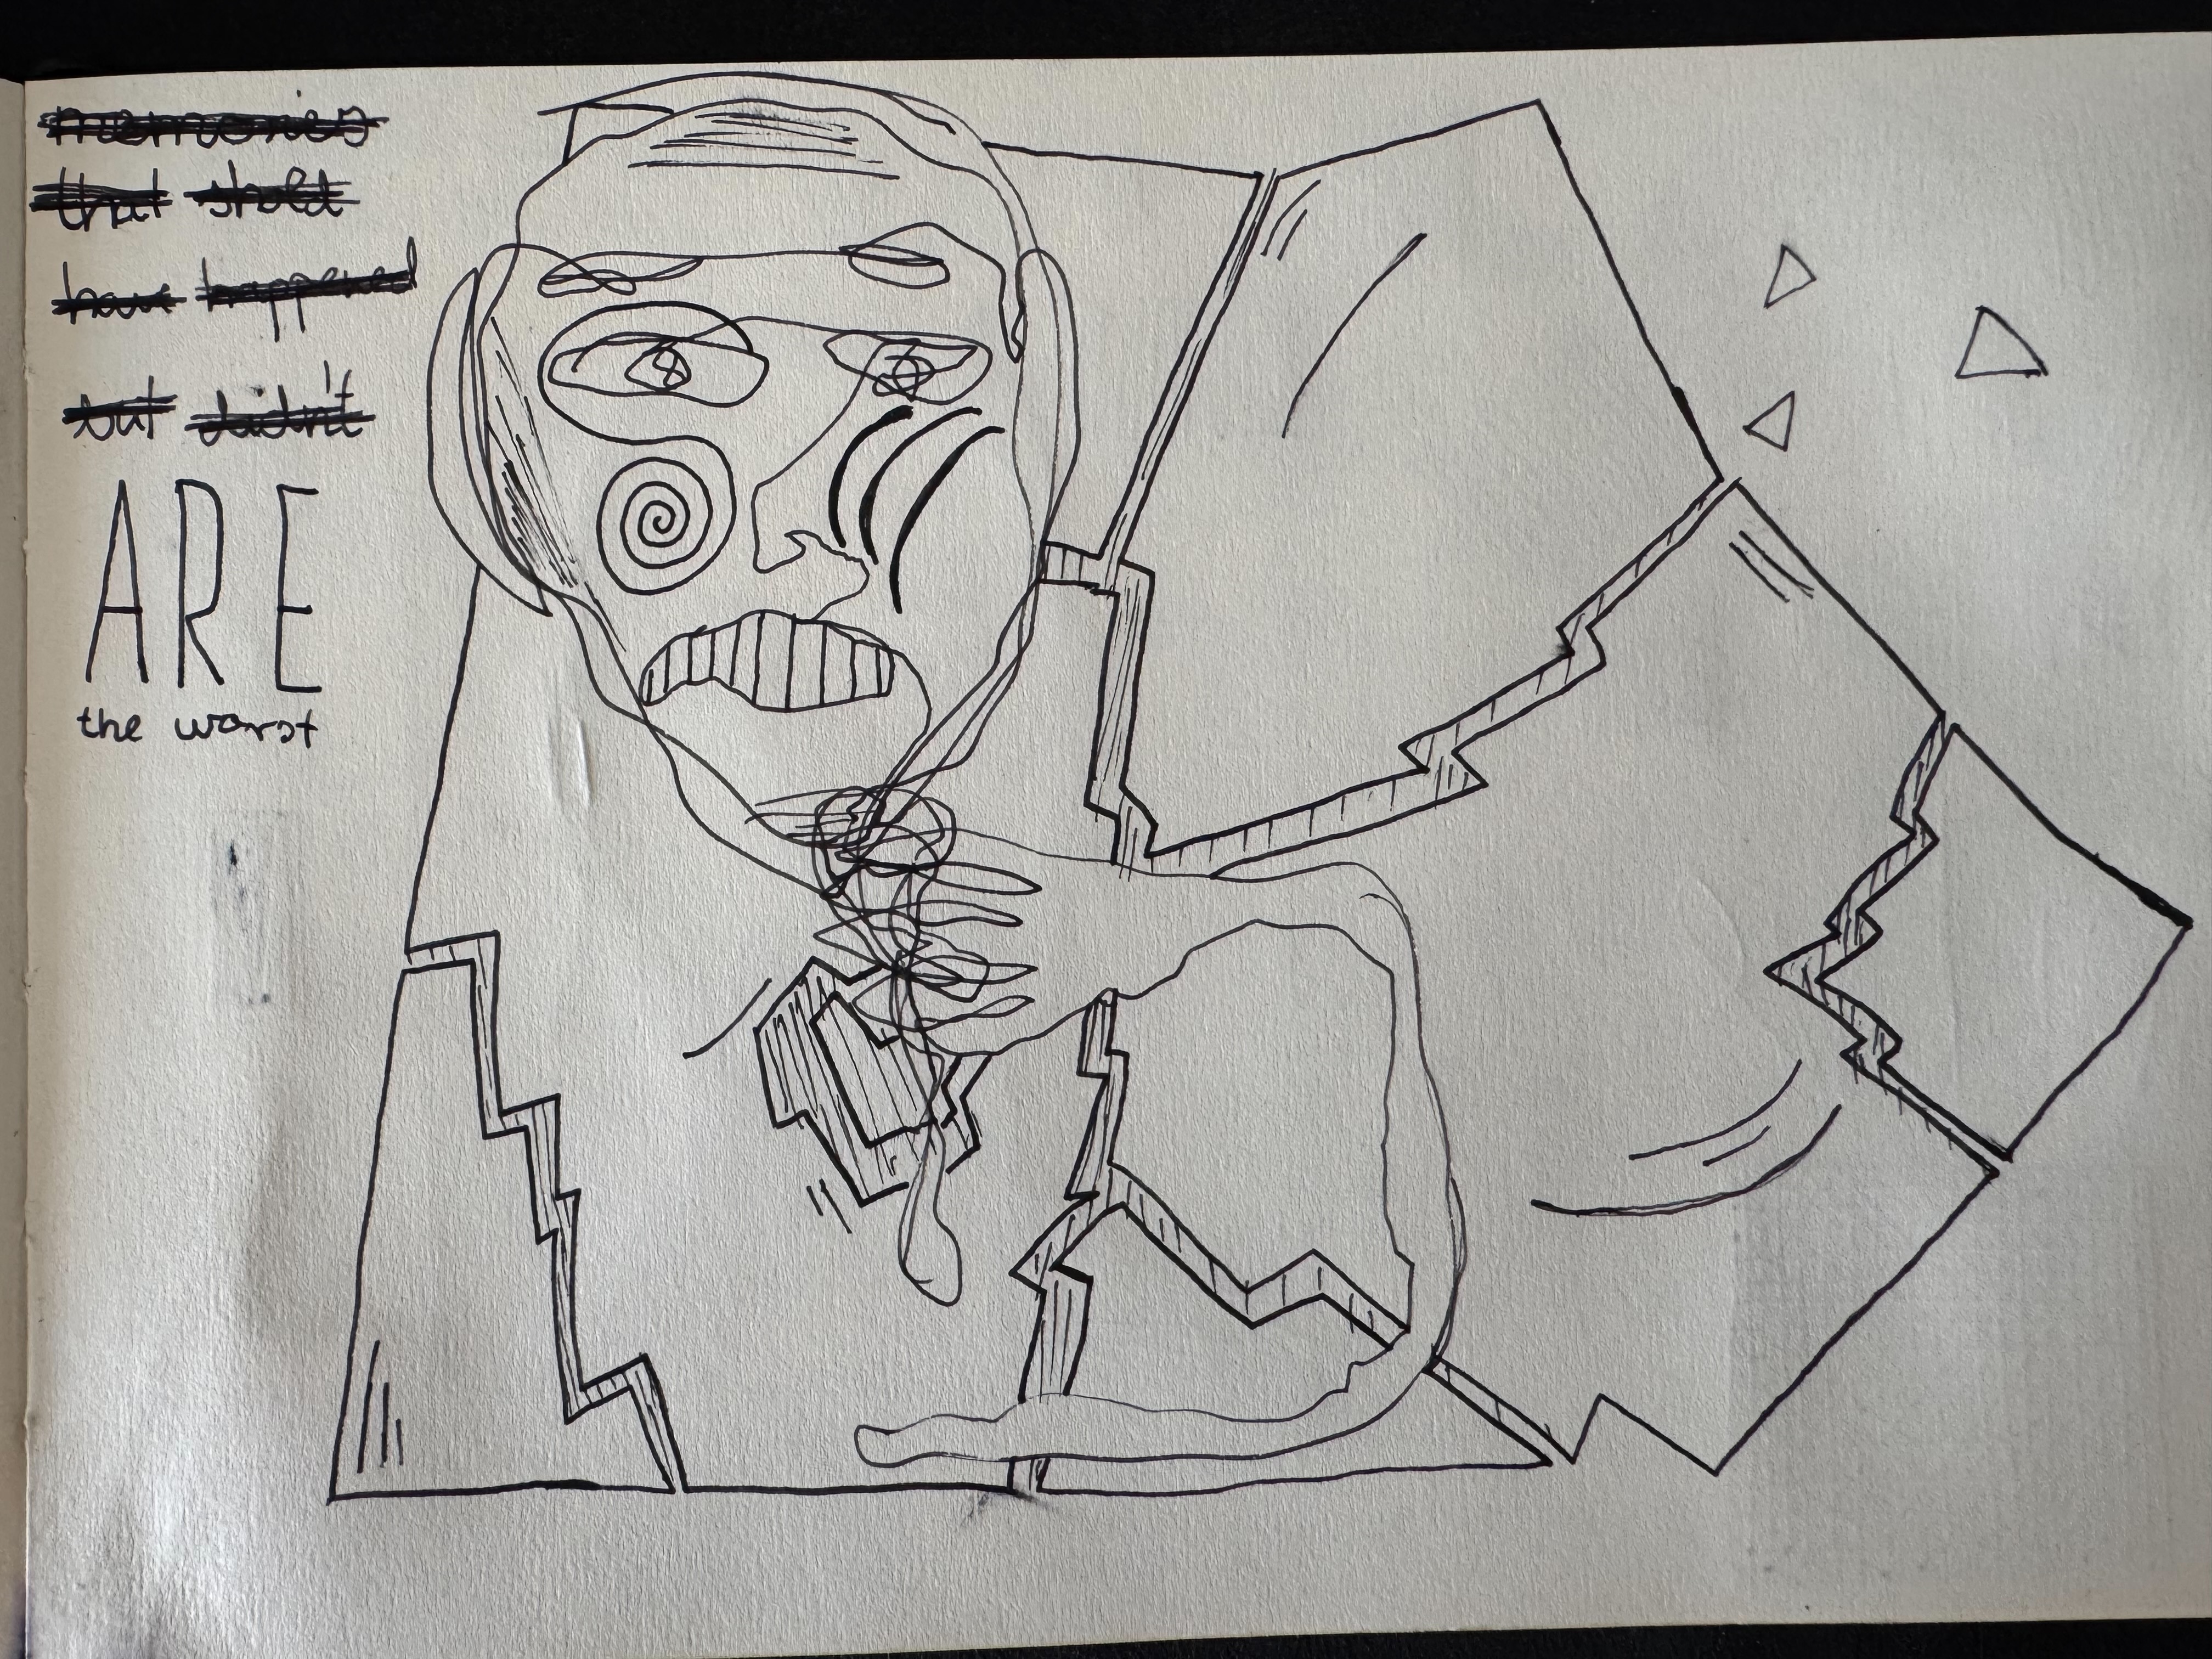 memories
that shold
have happened
but didn't
ARE
the worst